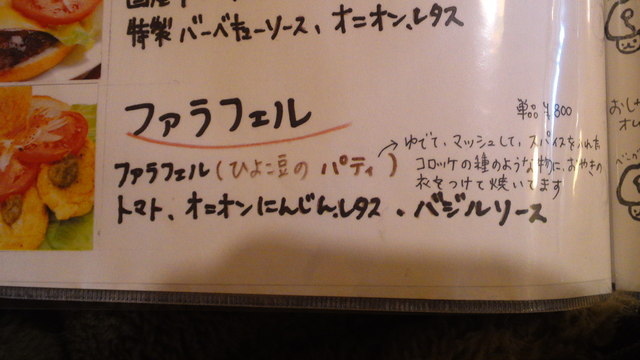 特製 バーベキューソース、オニオン、レタス
ファラフェル
単品 ¥800
ファラフェル(ひよこ豆の パティ)
ゆでて、マッシュして、スパイスを
コロッケの種のような物に、おやきの
衣をつけて焼いてます
トマト、オニオン にんじん、レタス 、バジルソース